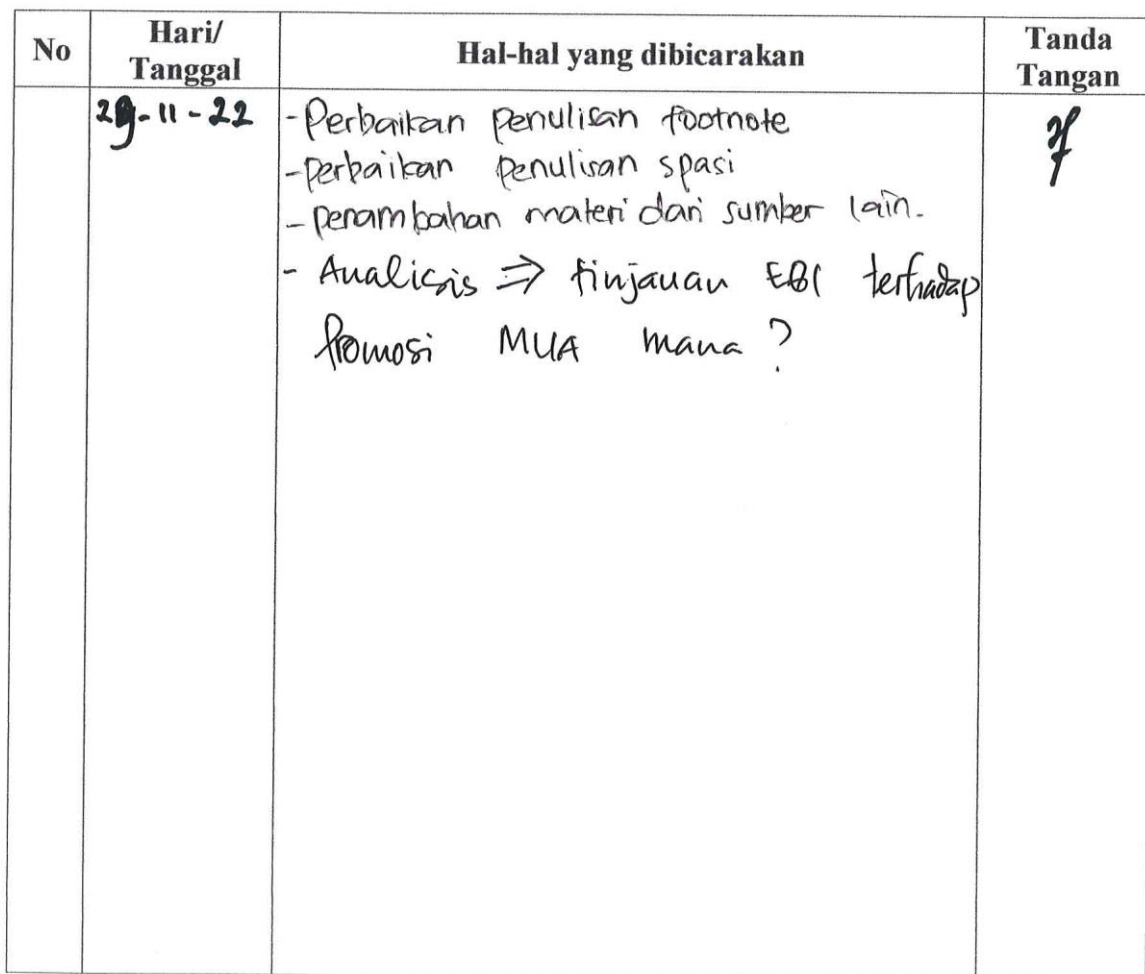 No
Hari/
Tanggal
Hal-hal yang dibicarakan
Tanda
Tangan
29-11-22
-Perbaikan penulisan footnote
-perbaikan penulisan spasi
-penambahan materi dari sumber lain.
- Analisis ⇒ tinjauan EBI terhadap
Promosi MUA mana?